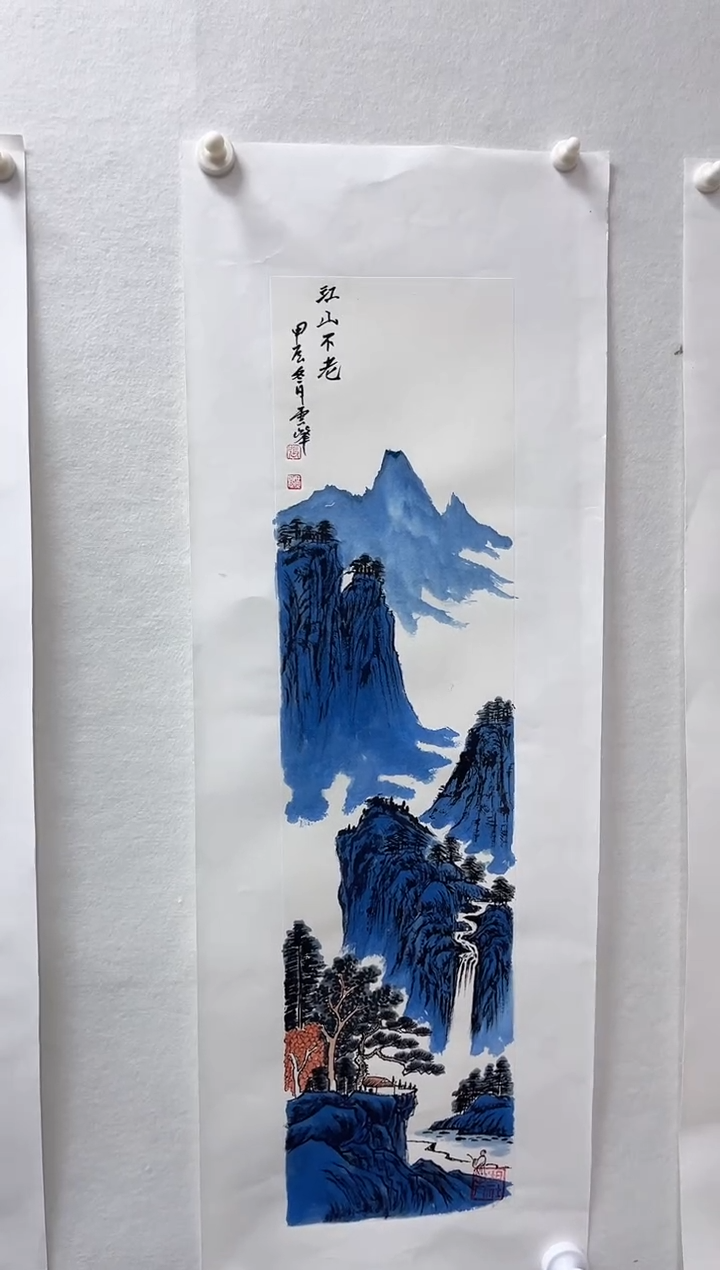 江山不老
甲辰冬月雲峰